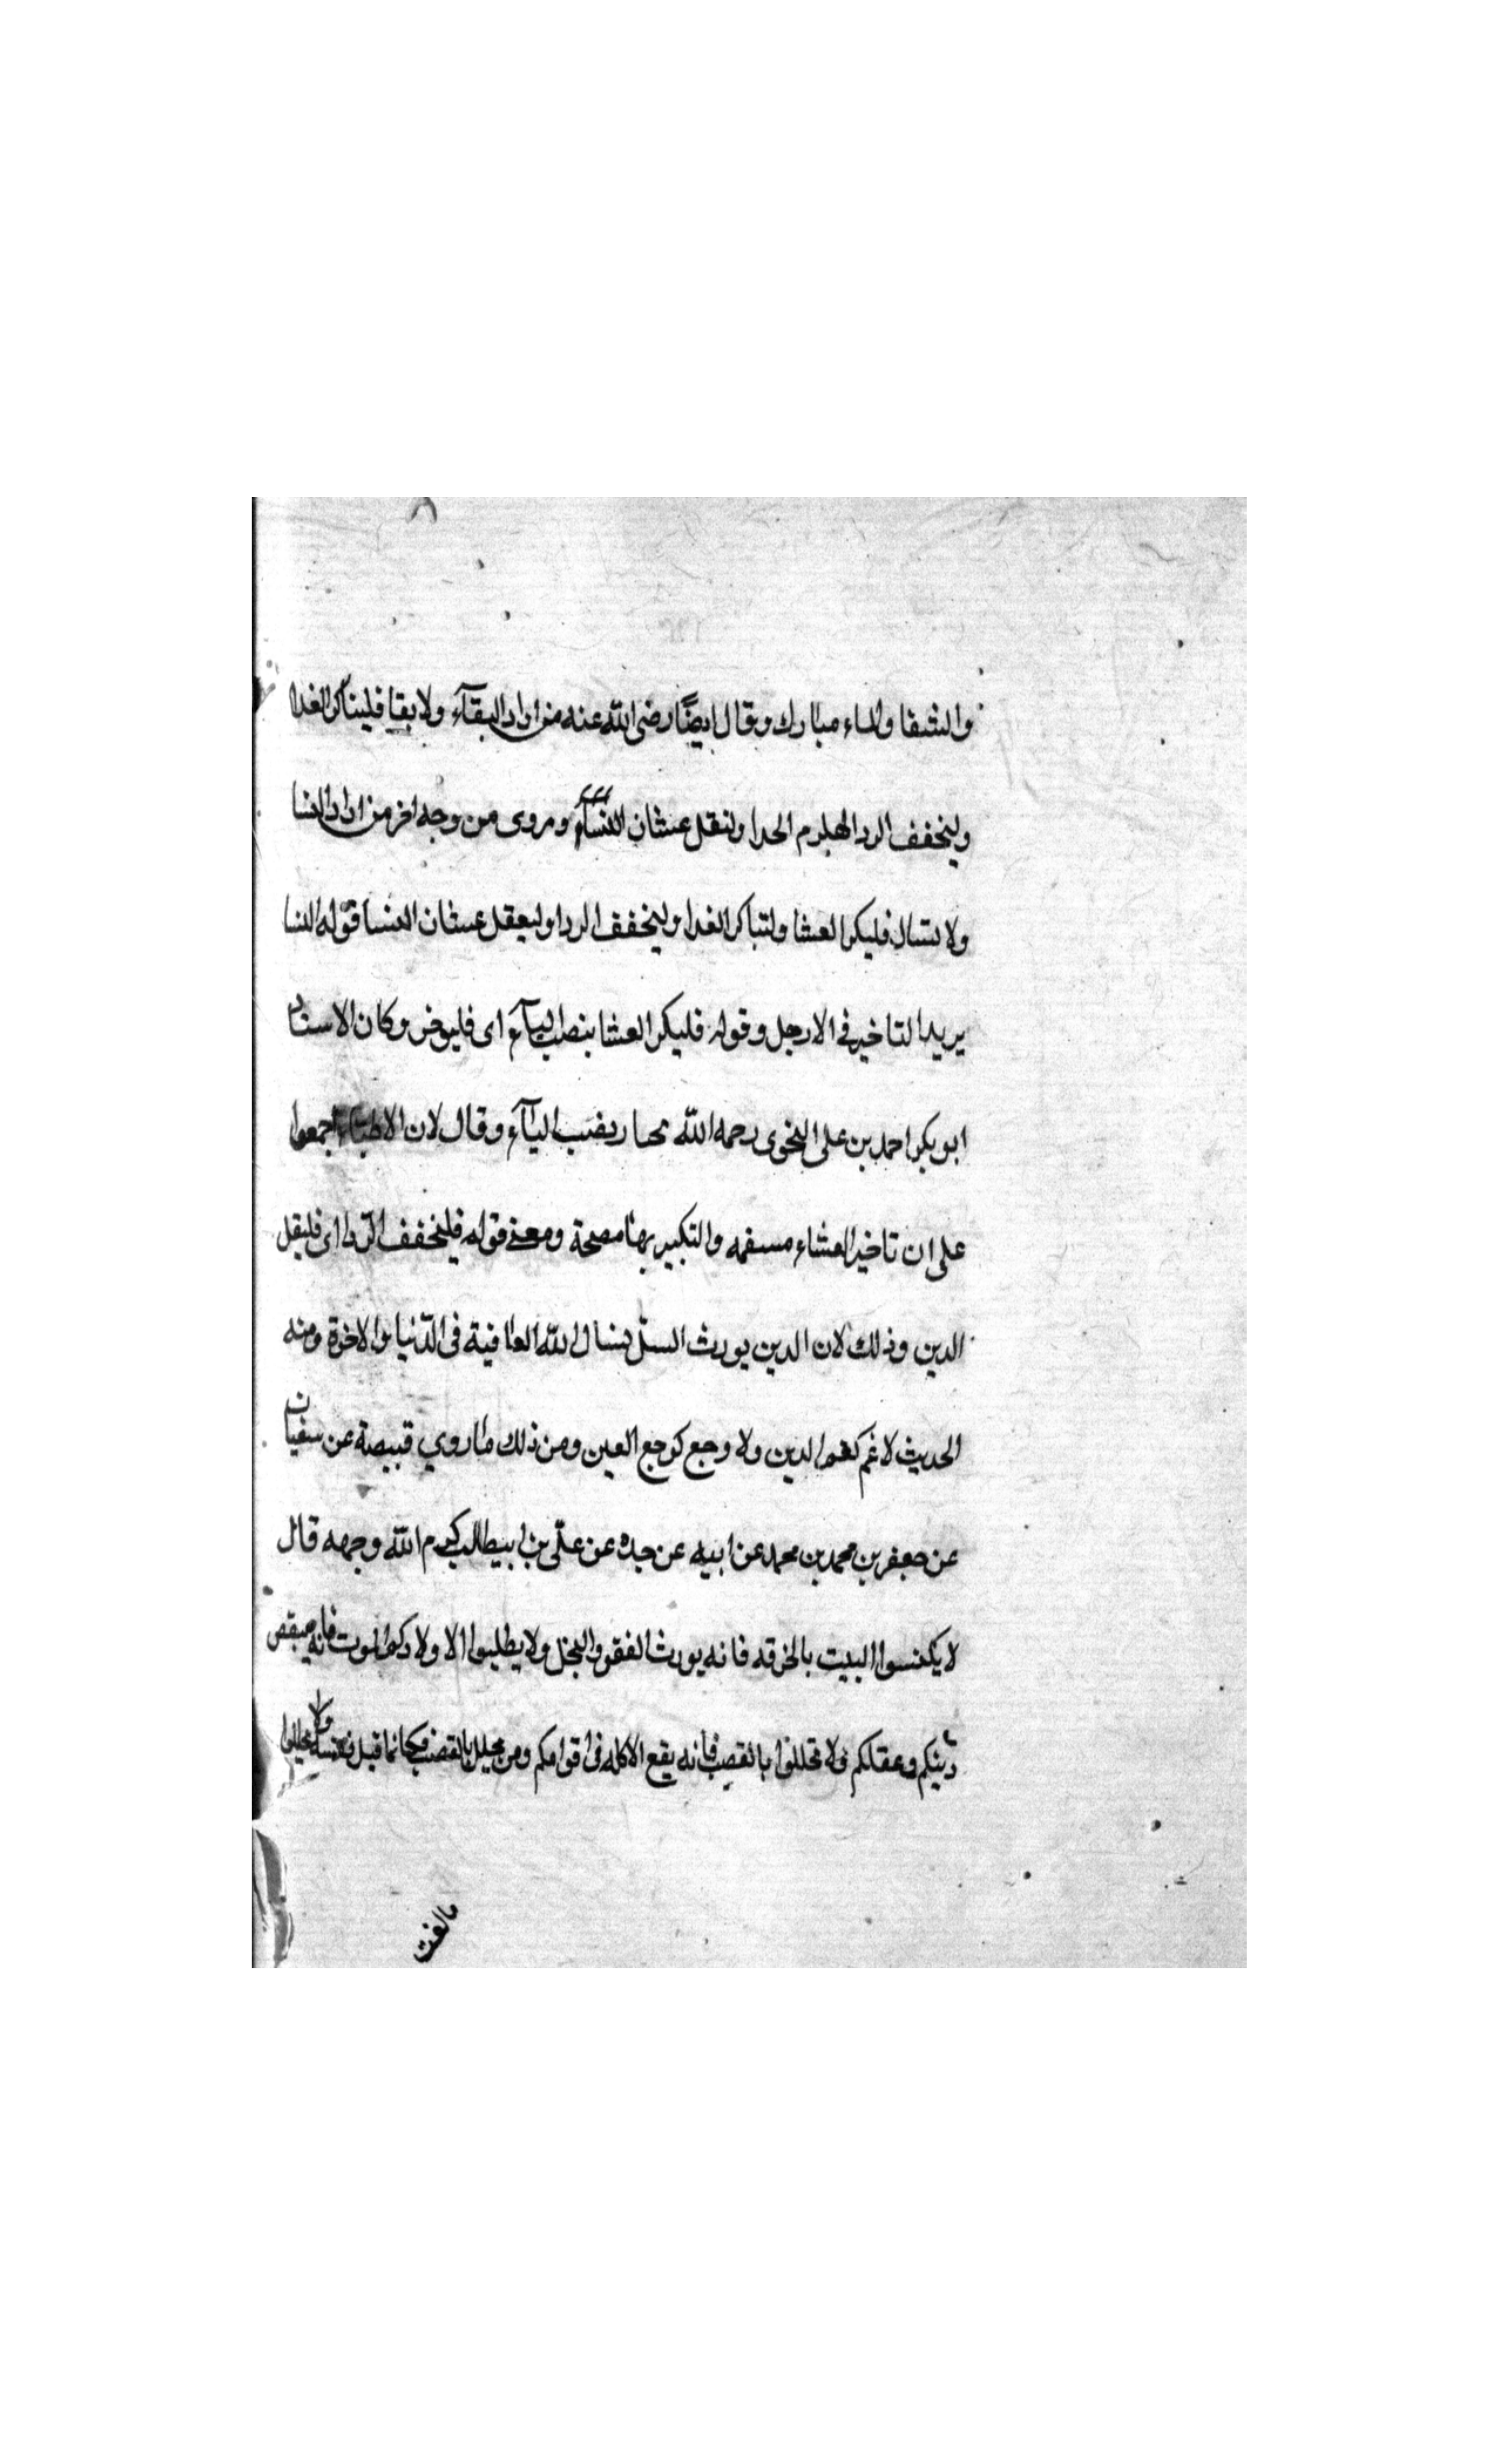 والشفا والماء مبارك وقال ايضًا رضى الله عنه من اراد البقآء ولا بقا فليباكر الغدا
وليخفف الردا وليلزم الحدا ولنقل عشان النسآء ومروى من وجه اخر من اراد النسا
ولا نسال فليكر العشا ولتباكر الغدا وليخفف الردا وليعقل عشان النسا قوله النسا
يريد التاخير في الارجل وقوله فليكر العشا بنصب اليآء اى فليوخر وكان الاستاد
ابو بكر احمد بن على النحوى رحمه الله يختار بنصب اليآء وقال لان الاطبآء اجمعوا
على ان تاخير العشاء مسقمه والتكبير بها مصحة ومعنى قوله فليخفف الردا اى فليقل
الدين وذلك لان الدين يورث السل نسال الله العافية فى الدّنيا والاخرة ومنه
الحديث لا غم كغم الدين ولا وجع كوجع العين ومن ذلك ما روي قبيصة عن سفيان
عن جعفر بن محمد بن محمد عن ابيه عن جده عن علّى بن ابيطالب كرم الله وجهه قال
لا يكنسوا البيت بالخرقه فانه يورث الفقر والبخل ولا يطلبوا الاولاد كم الموت فانه ينقص
دينكم وعقلكم ولا تخللوا بالقصب فانه يقع الاكله فى اقوامكم ومن يخلل بالقصب فكانما قتل نفسه ولا تخللوا